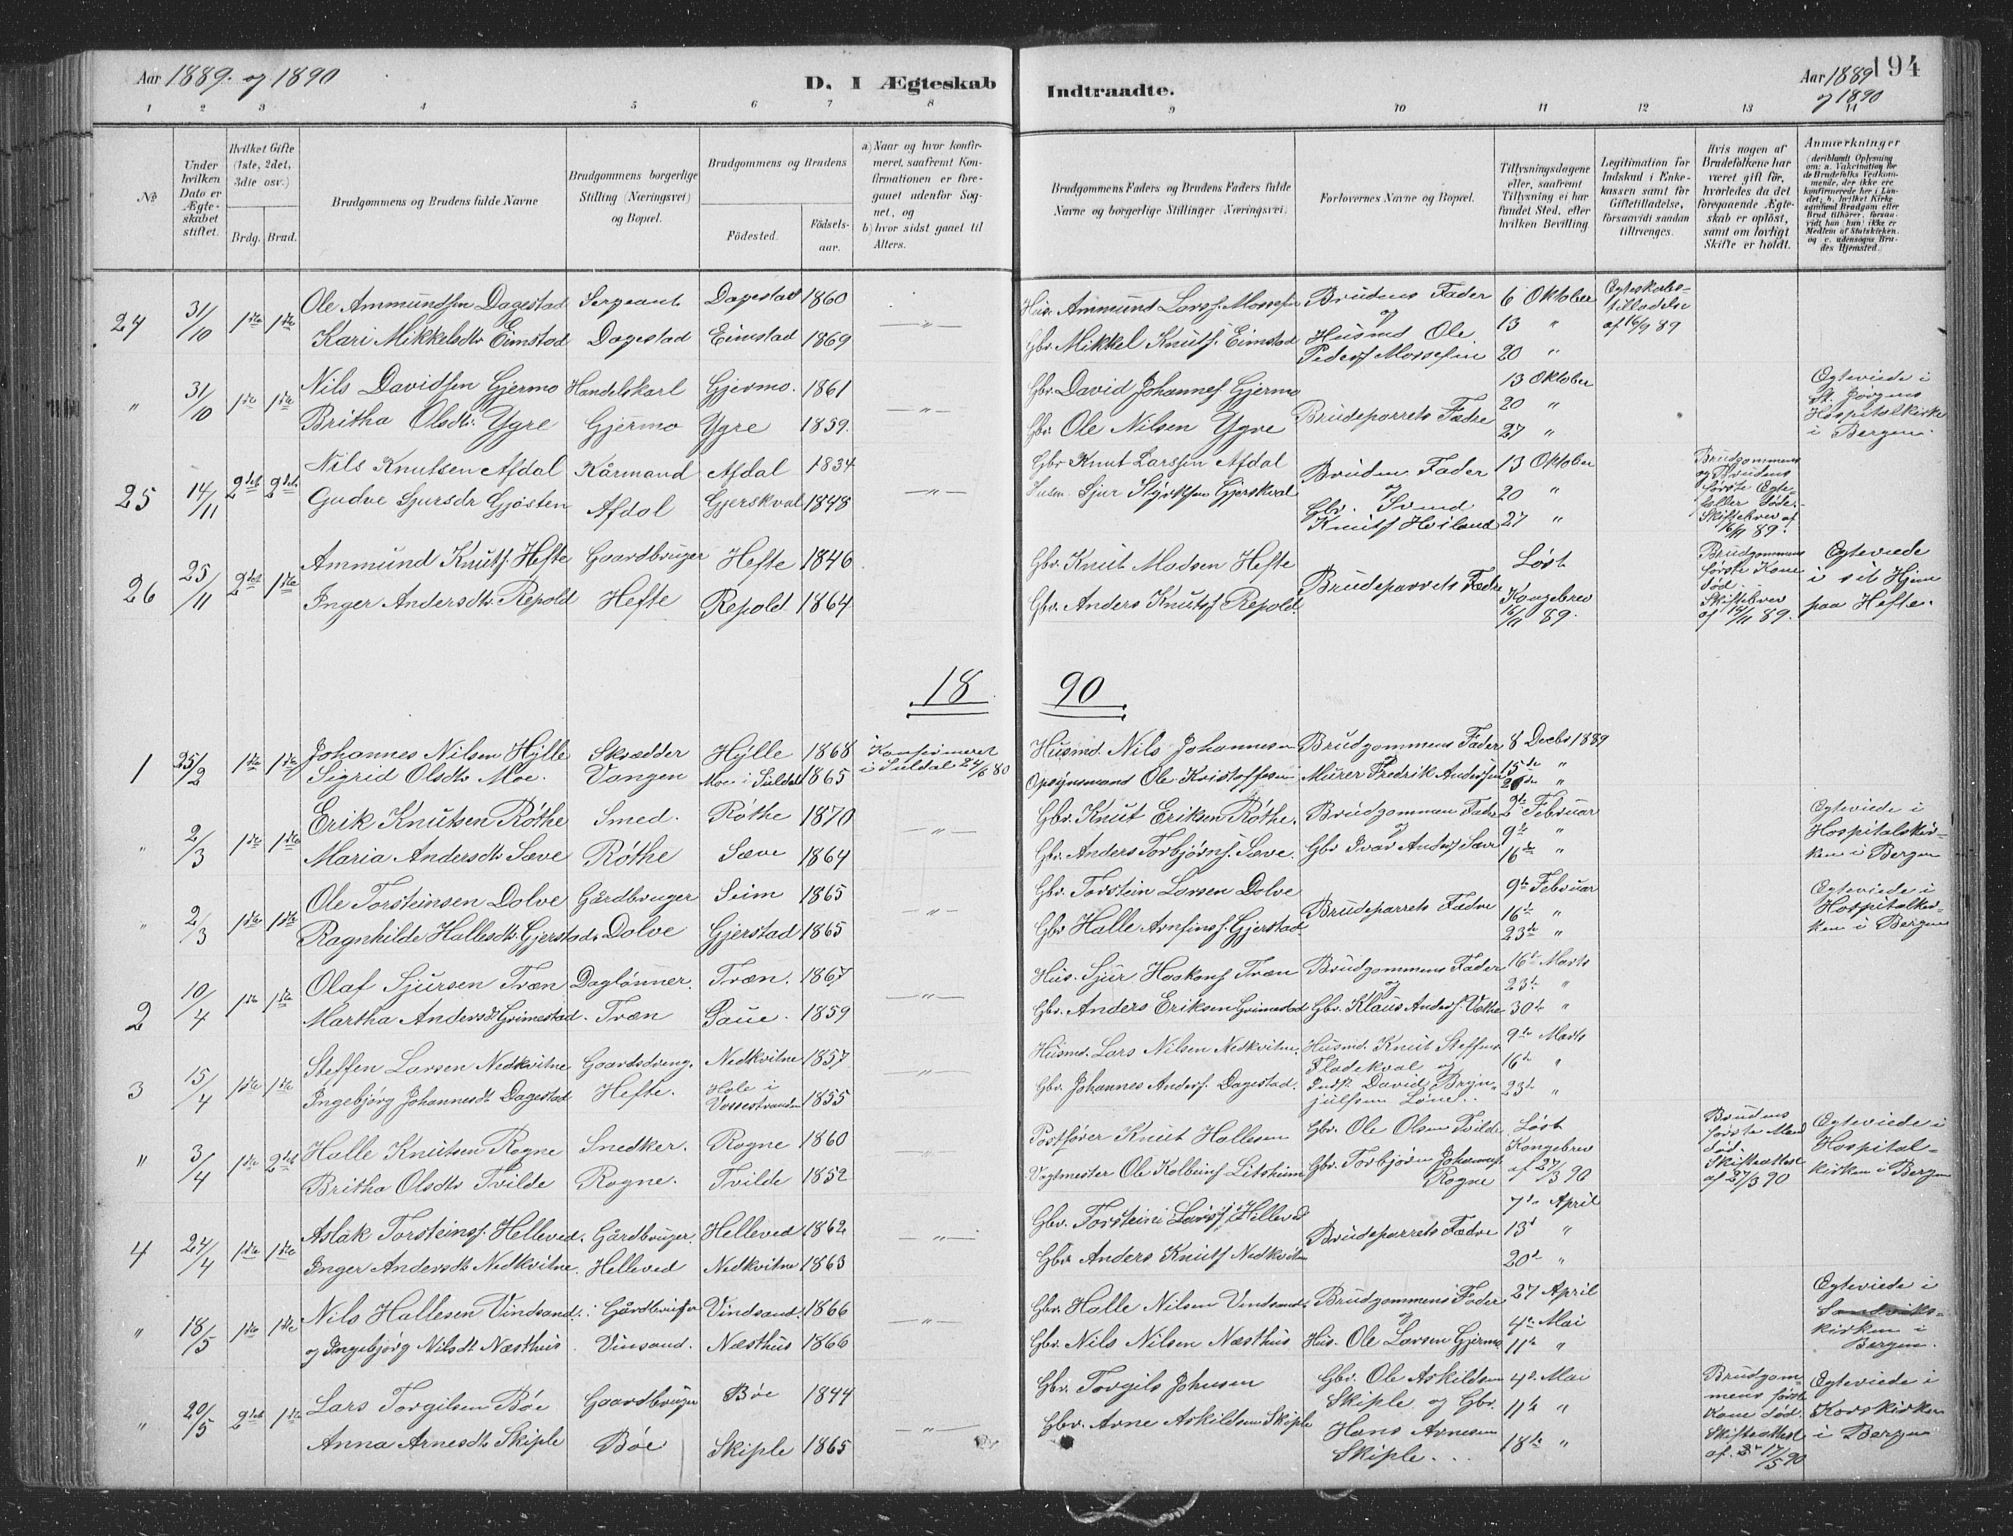 Aar 1889 og 1890
D. I Ægteskab Indtraadte.
Aar 1889 og 1890
194
1 2 3 4 5 6 7 8 9 10 11 12 13 14
No
Under hvilken Dato er Ægteskabet stiftet.
Hvilket Gifte (1ste, 2det, 3die osv.)
Brdg. Brud.
Brudgommens og Brudens fulde Navne
Brudgommens borgerlige Stilling (Næringsvei) og Bopæl.
Brudgommens og Brudens
Fødested. Fødselsaar.
a) Naar og hvor konfirmeret, saafremt Konfirmationen er foregaaet udenfor Sognet, og
b) hvor sidst gaaet til Alters.
Brudgommens Faders og Brudens Faders fulde Navne og borgerlige Stillinger (Næringsvei).
Forlovernes Navne og Bopæl.
Tillysningsdagene eller, saafremt Tillysning ei har fundet Sted, efter hvilken Bevilling
Legitimation for Indskud i Enkekassen samt for Giftetilladelse, forsaavidt saadan tiltrænges.
Hvis nogen af Brudefolkene har været gift før, hvorledes da det foregaaende Ægteskab er opløst, samt om lovligt Skifte er holdt.
Anmærkninger
24 31/10 1ste 1ste Ole Ammundsen Dagestad Sergeant Dagestad 1860 — " — Hus. Ammund Larss. Mossefin Brudens Fader 6 Oktober Egteskabs-
Kari Mikkelsdtr Eimstad Dagestad Eimstad 1869 Gbr. Mikkel Knuts. Eimstad og Husmd Ole 13 " tilladelse
Peders. Mossefin 20 " af 16/9 89
" 31/10 1ste 1ste Nils Davidsen Gjermo Handelskarl Gjermo. 1861 — " — Gbr. David Johannes. Gjermo 13 Oktober Egteviede i
Britha Olsdtr. Ygre Gjermo Ygre 1859. Gbr. Ole Nilsen Ygre Brudeparrets Fædre 20 " St. Jørgens
27 " Hospitalskirke
i Bergen.
25 14/11 2det 2det Nils Knutsen Afdal Kårmand Afdal 1834 — " — Gbr Knut Larssen Afdal Brudens Fader 13 Oktober Brudgommens
Gudve Sjursdr Gjøsten Afdal Gjerskval 1848 Husm. Sjur Styrksen Gjerskval og 20 " og Brudens
Gbr. Svend første Egte-
Knuts. Hviland 27 " fæller døde.
Skiftebrev af
16/11 89.
26 25/11 2det 1ste Ammund Knuts. Hefte Gaardbruger Hefte 1846 Gbr. Knut Madsen Hefte Løst Brudgommens Egteviede
Inger Andersdtr. Repold Hefte Repold 1864 Gbr. Anders Knuts. Repold. Brudeparrets Fædre Kongebrev første Kone i sit Hjem
16/11 89. død. paa Hefte.
Skiftebrev
af 14/11 89.
18 90
1 25/2 1ste 1ste Johannes Nilsen Hylle Skrædder Hylle 1868 Konfirmeret Husmd. Nils Johannesen Brudgommens Fader 8 Decbr 1889
Sigrid Olsdtr Moe. Vangen Moe i Suldal 1865 i Suldal 24/6 80 Opsynsmand Ole Kristoffersen og Murer Fredrik Anderssen 15de "
" 2/3 1ste 1ste Erik Knutsen Røthe Smed. Røthe 1870 — " — Gbr. Knut Eriksen Røthe. Brudgommen Fader 2de Februar Egteviede i
Maria Andersdtr Sæve Røthe Sæve 1864 Gbr. Anders Torbjørns. Sæve. og Gbr Ivar Anders. Sæve 9de " Hospitalskir-
16de " ken i Bergen
" 2/3 1ste 1ste Ole Torsteinsen Dolve Gårdbruger Seim 1865 — " — Gbr. Torstein Larsen Dolve 9de Februar Egteviede i
Ragnhilde Hallesdtr. Gjerstad. Dolve Gjerstad 1865 Gbr Halle Arnfins. Gjerstad. Brudeparrets Fædre 16de " Hospitalskir-
23de " ken i Bergen
2 10/4 1ste 1ste Olaf Sjursen Træn Daglønner. Træn. 1867 — " — Hus. Sjur Haakons. Træn Brudgommens Fader 16de Marts
Martha Andersdt Grimestad. Træn Saue. 1859 Gbr. Anders Eriksen Grimestad og Gbr. Klaus Anders. Væthe 23de "
30de "
3 15/4 1ste 1ste Steffen Larsen Nedkvitne Gaardsdreng. Nedkvitne 1857 — " — Husmd. Lars Nilsen Nedkvitne. Husmd. Knut Steffens. 9de Marts
Ingebjørg Johannesdt Dagestad Hefte. Hole i Vossestranden 1855 Gbr. Johannes Anders. Dagestad. Fladekval og 16de "
Inds. David Bryn- 23de "
julfsen Løne..
" 3/4 1ste 2det Halle Knutsen Rogne Snedker. Rogne 1860 — " — Postfører Knut Hallesen Gbr. Ole Olsen Tvilde Løst Brudens Egteviede i
Britha Olsdtr Tvilde Rogne. Tvilde 1852 Vagtmester Ole Kolbeins. Litsheim Gbr. Torbjørn Johannes. Kongebrev første Mand Hospital-
Rogne af 27/3 90 død. kirken i Bergen
Skifteattest
af 27/3 90
4 24/4 1ste 1ste Aslak Torsteins. Helleved. Gårdbruger. Helleved 1862 — " — Gbr. Torstein Larss. Helleved 7de April
Inger Andersdt Nedkvitne. Helleved Nedkvitne 1863 Gbr. Anders Knuts. Nedkvitne Brudeparrets Fædre 13d "
20d "
" 18/5 1ste 1ste Nils Hallesen Vindsand. Gårdbruger Vindsand. 1866 — " — Gbr. Halle Nilsen Vindsand. Brudgommens Fader 27 April Egteviede i
og Ingebjørg Nilsdt Næsthus Vinsand. Næsthus 1866 Gbr. Nils Nilsen Næsthus og Hus. Ole Larsen Gjermo 4de Mai Sandviks-
11te " kirken i
Bergen.
" 20/5 2det 1ste Lars Torgilsen Bøe Gaardbruger Bøe 1844 — " — Gbr. Torgils Johnsen Gbr. Ole Askildsen 4de Mai Brudgom- Egteviede i
Anna Arnesdtr Skiple Bøe Skiple 1865 Gbr. Arne Askildsen Skiple Skiple og Gbr. 11te " mens første Korskirken
Hans Arnesen 18de " Kone død. i Bergen
Skiple... Skifteattest
af. 17/5 90